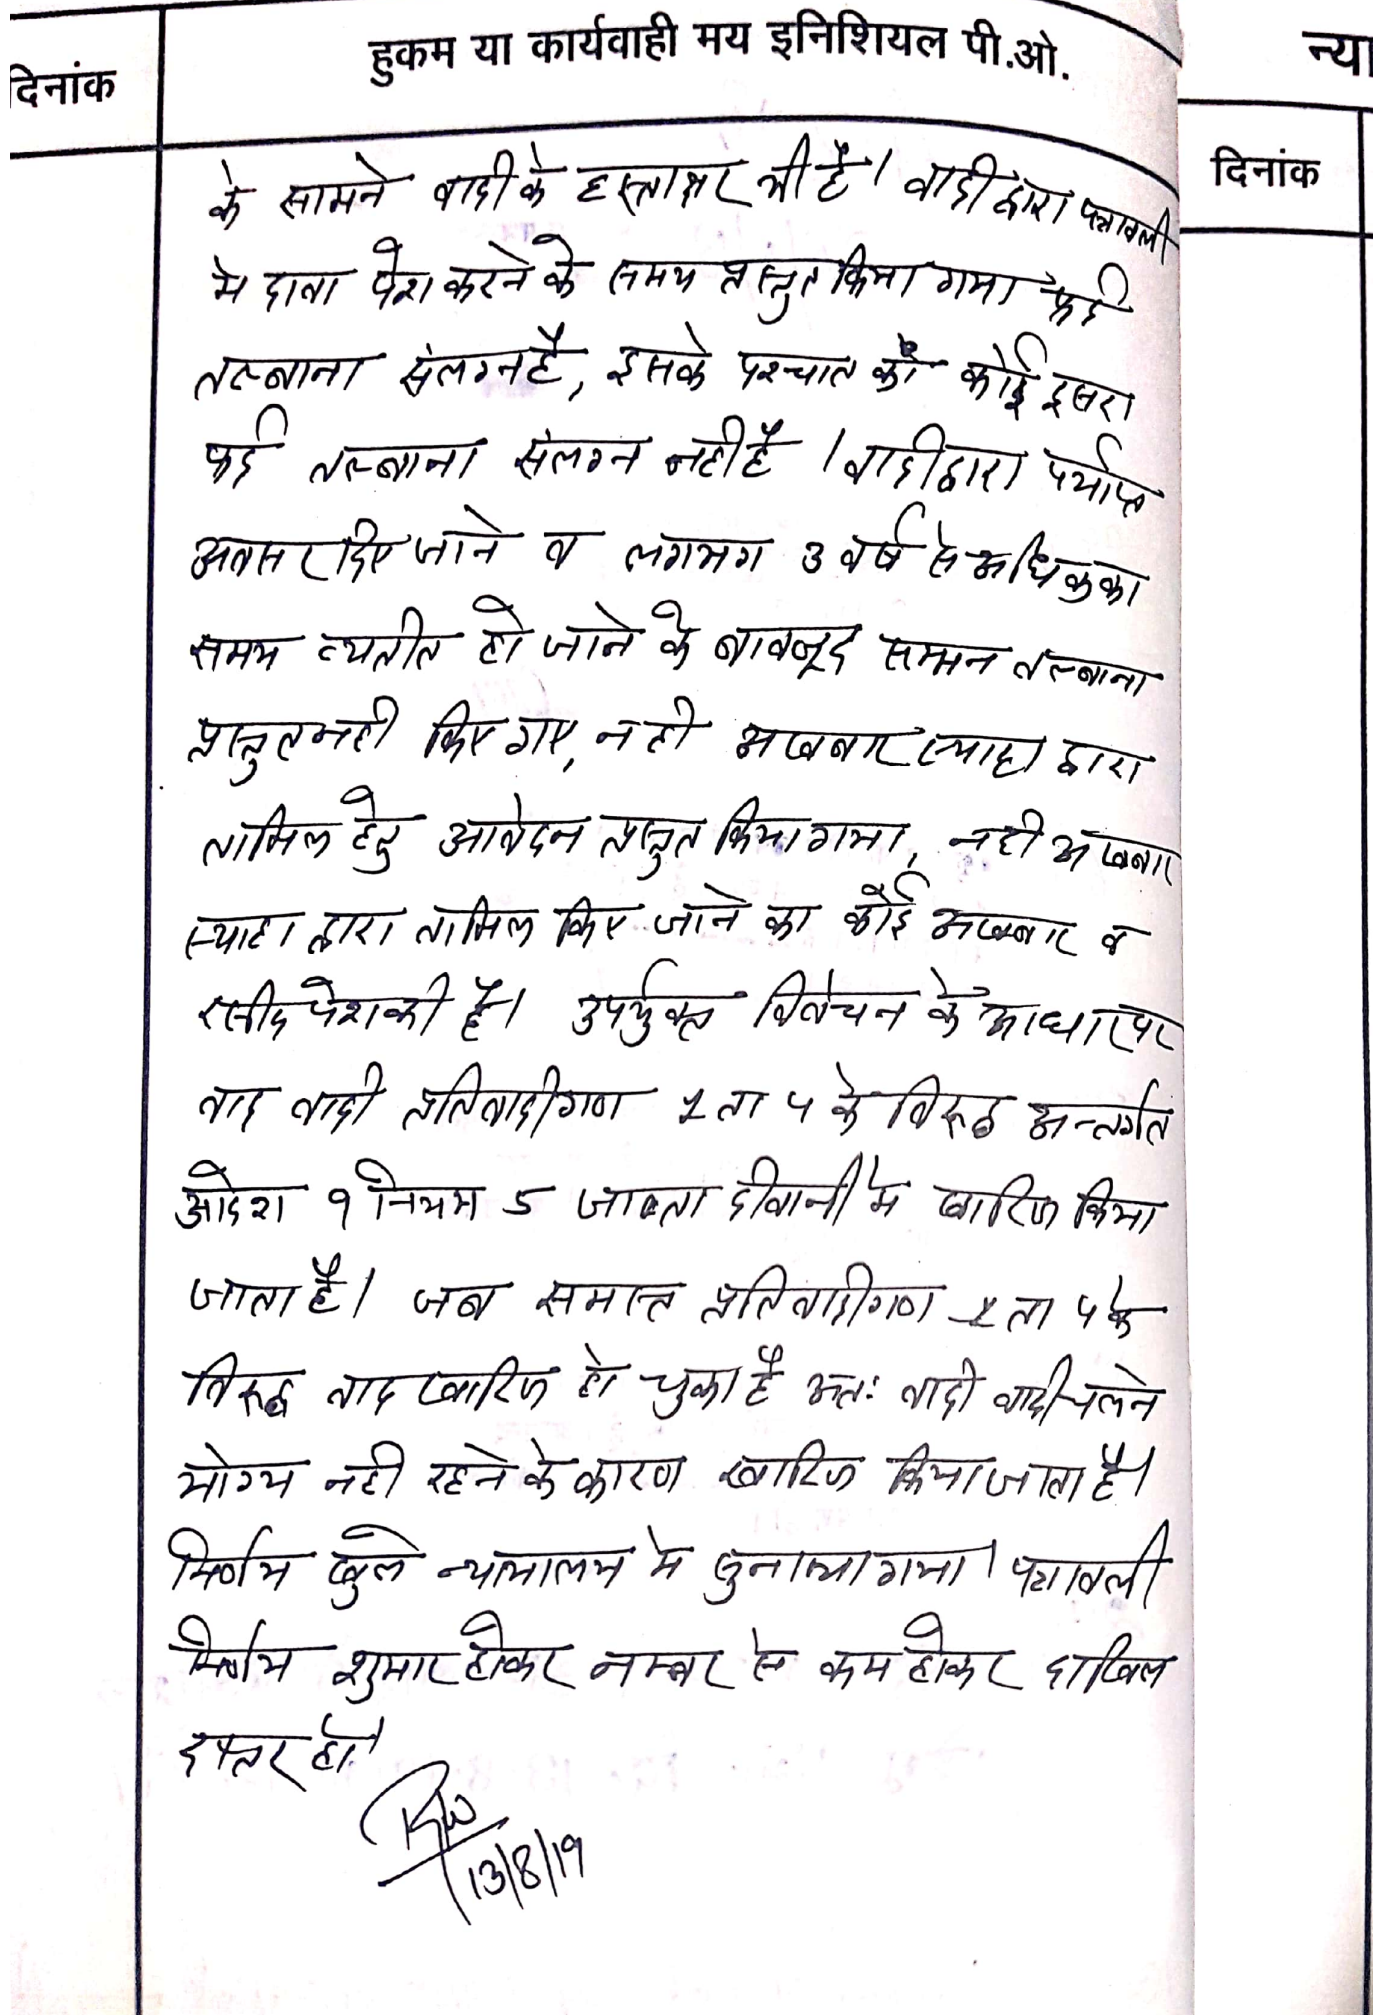 हुकम या कार्यवाही मय इनिशियल पी.ओ.
दिनांक
न्या
दिनांक
के सामने वादी के हस्ताक्षर भी है। वादी द्वारा पत्रावली
मे दावा पेश करने के समय प्रस्तुत किया गया फर्द
तल्बाना संलग्न है, इसके पश्चात कोई दूसरा
फर्द तल्बाना संलग्न नही है। वादी द्वारा पर्याप्त
अवसर दिए जाने व लगभग 3 वर्ष से अधिक का
समय व्यतीत हो जाने के बावजूद सम्मन तल्बाना
प्रस्तुत नही किए गए, न ही अखबार स्याहा द्वारा
तामिल हेतु आवेदन प्रस्तुत किया गया, न ही अखबार
स्याहा द्वारा तामिल किए जाने का कोई अखबार व
रसीद पेश की है। उपर्युक्त विवेचन के आधार पर
वाद वादी प्रतिवादीगण 1 ता 4 के विरूद्ध अन्तर्गत
आदेश 9 नियम 5 जाब्ता दीवानी मे खारिज किया
जाता है। जब समस्त प्रतिवादीगण 1 ता 4 के
विरूद्ध वाद खारिज हो चुका है अतः वादी चलने
योग्य नही रहने के कारण खारिज किया जाता है।
निर्णय खुले न्यायालय मे सुनाया गया। पत्रावली
निर्णय शुमार होकर नम्बर से कम होकर दाखिल
दफ्तर हो।
13/8/19